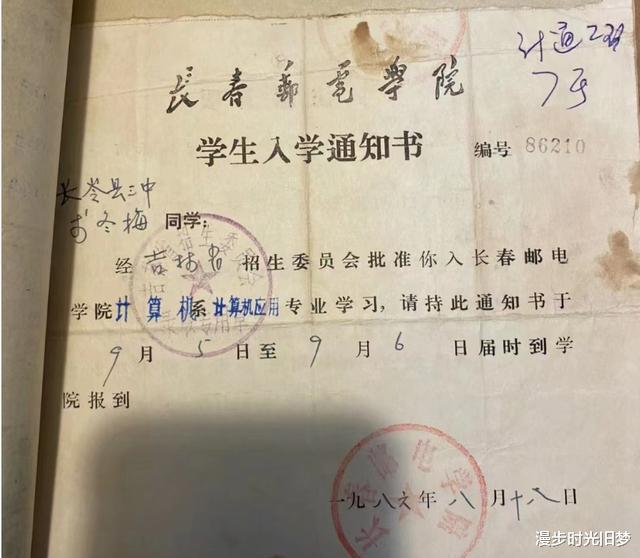 计通
7号
長春郵電學院
学生入学通知书 编号 86210
长岭县三中
冬梅 同学:
经吉林省招生委员会批准你入长春邮电
学院计算机系计算机应用专业学习,请持此通知书于
9月5日至9月6日届时到学
院报到
一九八六年八月十八日
长春邮电学院
漫步时光旧梦